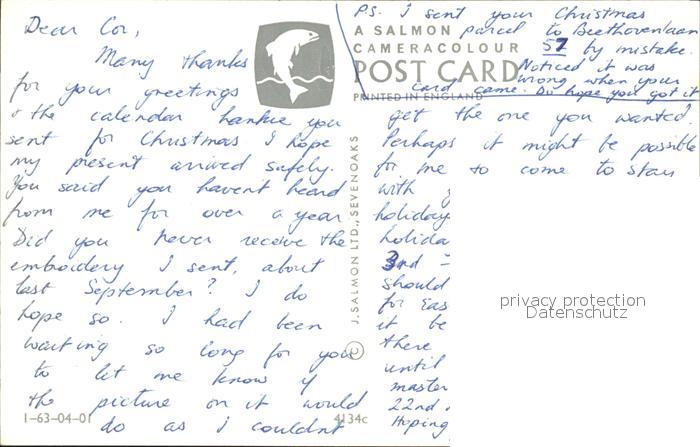 Dear Cor,
Many thanks
for your greetings
& the calendar hankie you
sent for Christmas I hope
my present arrived safely.
You said you havent heard
from me for over a year
Did you never receive the
embroidery I sent, about
last September? I do
hope so. I had been
waiting so long for you
to let me know if
the picture on it would
do as I couldnt
1-63-04-01
4134c
P.S. I sent your Christmas
parcel to Beethovenlaan
57 by mistake.
Noticed it was
wrong when your
card came. Do hope you got it
A SALMON
CAMERACOLOUR
POST CARD
PRINTED IN ENGLAND
J. SALMON LTD., SEVENOAKS ©
get the one you wanted.
Perhaps it might be possible
for me to come to stay
with
holiday
holida
3rd -
should
for Eas
it be
there
until
master
22nd
Hoping
privacy protection
Datenschutz